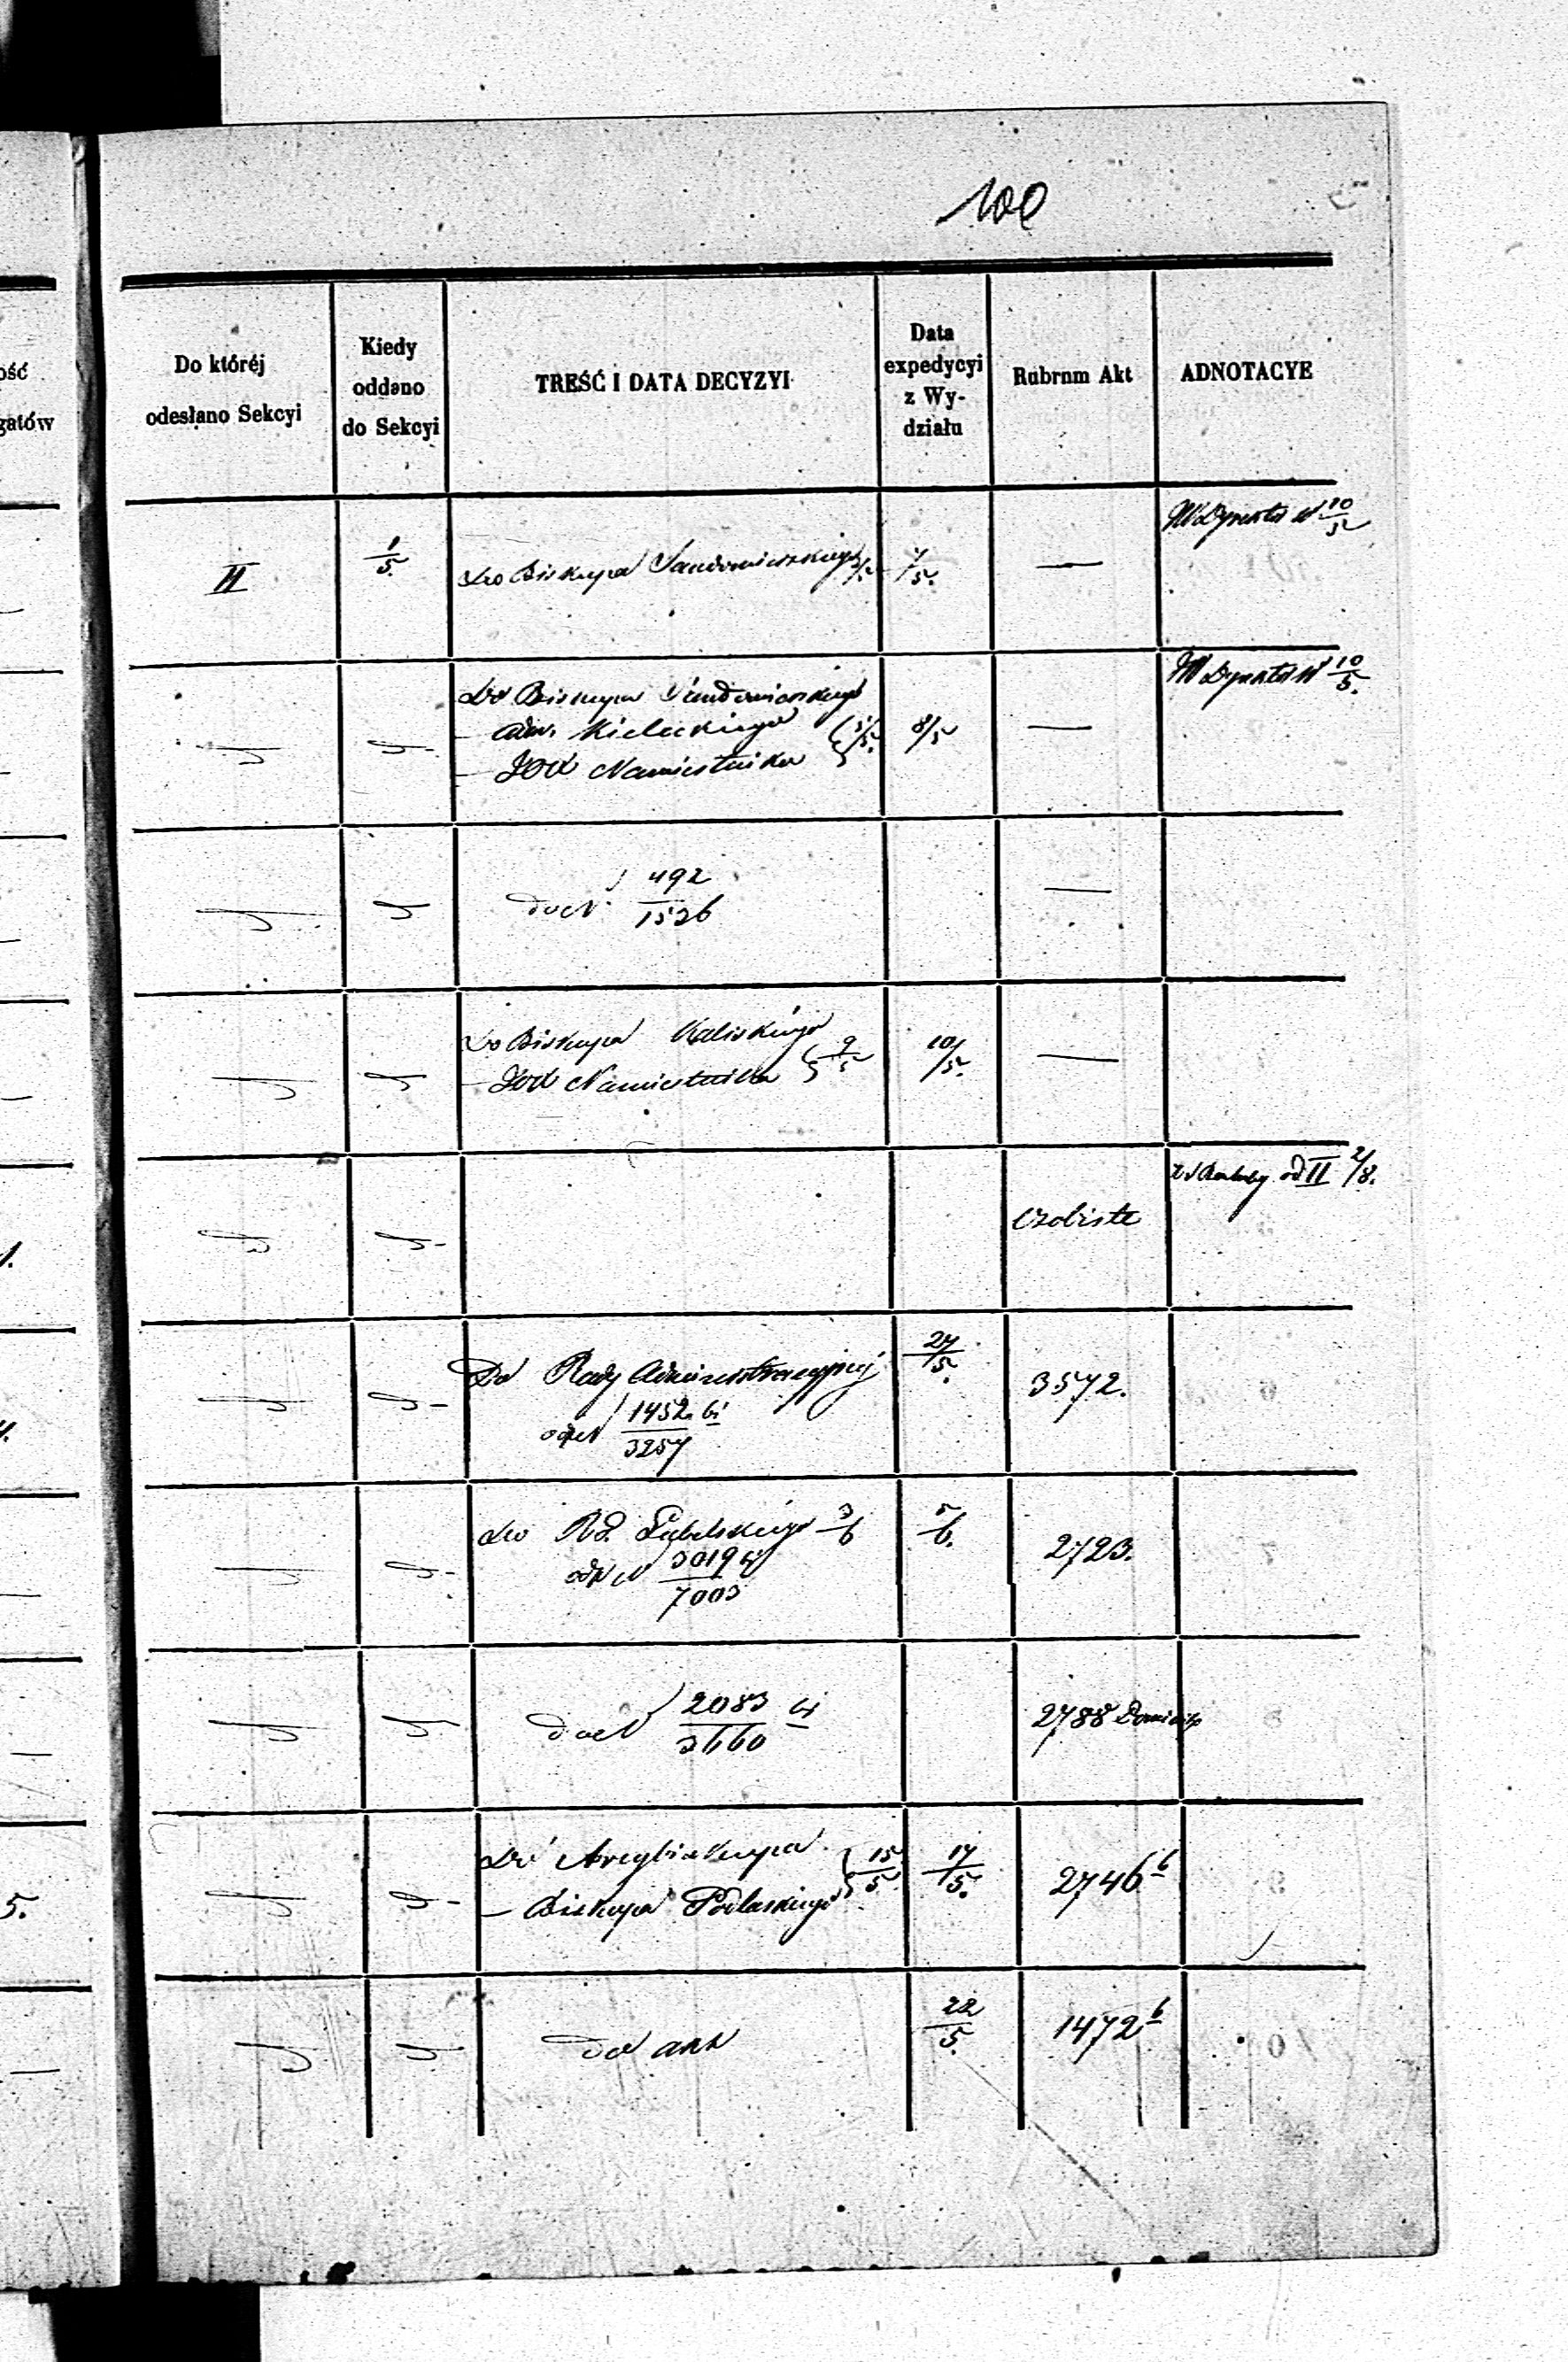 100
ość
gatów
Do któréj
odesłano Sekcyi
Kiedy
oddano
do Sekcyi
TREŚĆ I DATA DECYZYI
Data
expedycyi
z Wy-
działu
Rubrum Akt
ADNOTACYE
II
1/5.
Do Biskupa Sandomierskiego
7/5.
—
10/5
Do Biskupa Sandomierskiego
— Adm. Kieleckiego
— JOX Namiestnika
8/5
—
10/5.
do N 492/1526
—
Do Biskupa Kaliskiego
— JOX Namiestnika
9/5
10/5.
—
Osobiste
od II 2/8.
Do Rady Administracyjnej
odp N 1452/3257
27/5.
3572.
Do Rd. Lubelskiego 3/6
odp N 3019/7003
5/6.
2723.
do N 2083/3660
2788
Do Arcybiskupa
— Biskupa Podlaskiego
15/5
17/5.
2746 b
5.
do akt
22/5.
1472 b